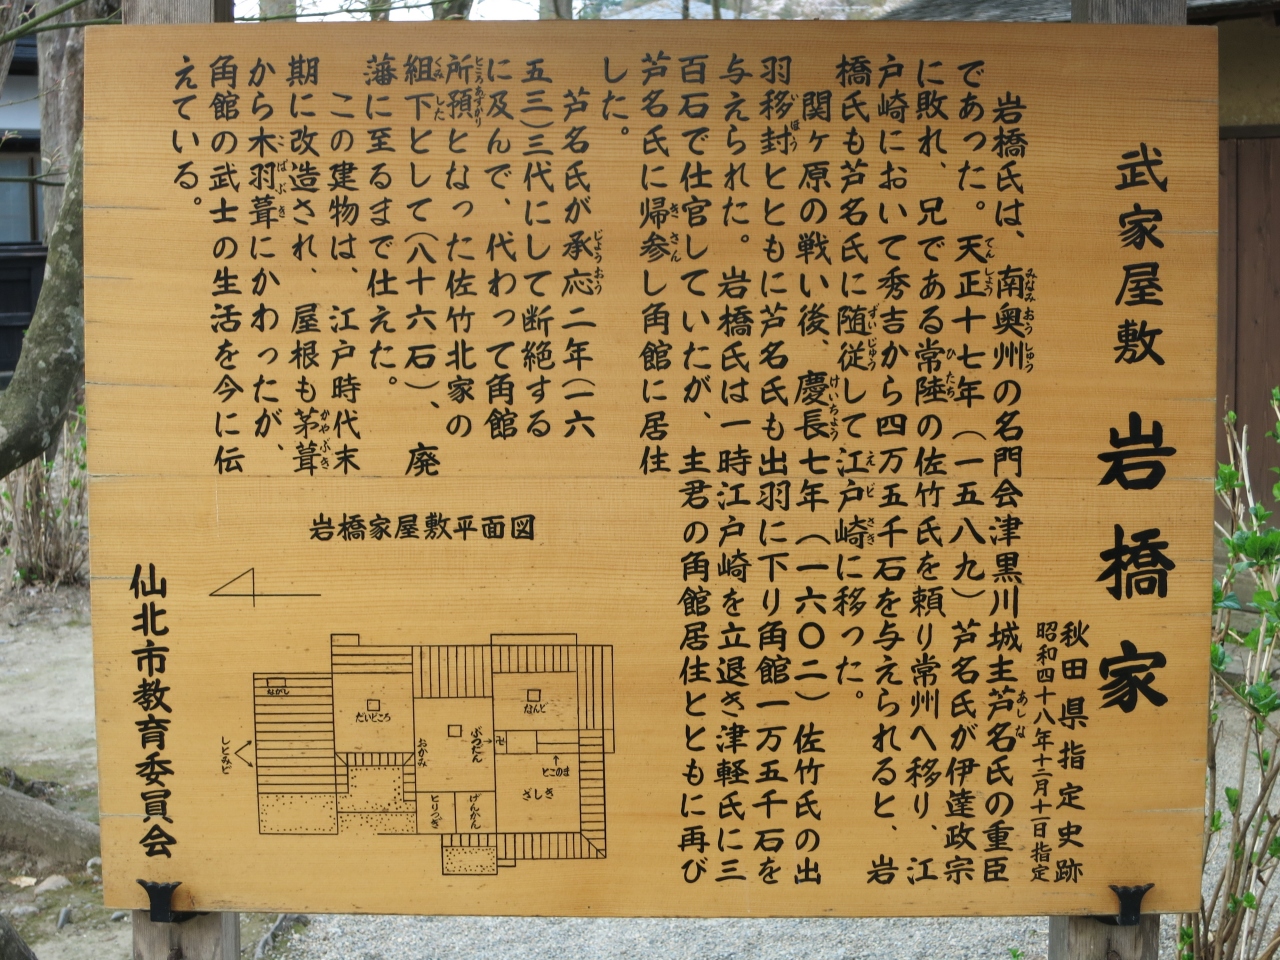 武家屋敷 岩橋家
秋田県指定史跡
昭和四十八年十二月十一日指定
岩橋氏は、南奥州の名門会津黒川城主芦名氏の重臣
であった。天正十七年（一五八九）芦名氏が伊達政宗
に敗れ、兄である常陸の佐竹氏を頼り常州へ移り、江
戸崎において秀吉から四万五千石を与えられると、岩
橋氏も芦名氏に随従して江戸崎に移った。
関ヶ原の戦い後、慶長七年（一六〇二）佐竹氏の出
羽移封とともに芦名氏も出羽に下り角館一万五千石を
与えられた。岩橋氏は一時江戸崎を立退き津軽氏に三
百石で仕官していたが、主君の角館居住とともに再び
芦名氏に帰参し角館に居住
した。
芦名氏が承応二年（一六
五三）三代にして断絶する
に及んで、代わって角館
所預となった佐竹北家の
組下として（八十六石）、廃
藩に至るまで仕えた。
この建物は、江戸時代末
期に改造され、屋根も茅葺
から木羽葺にかわったが、
角館の武士の生活を今に伝
えている。
岩橋家屋敷平面図
ながし
だいどころ
なんど
ぶつだん
おかみ
とこのま
ざしき
とりつぎ
げんかん
しとみど
仙北市教育委員会